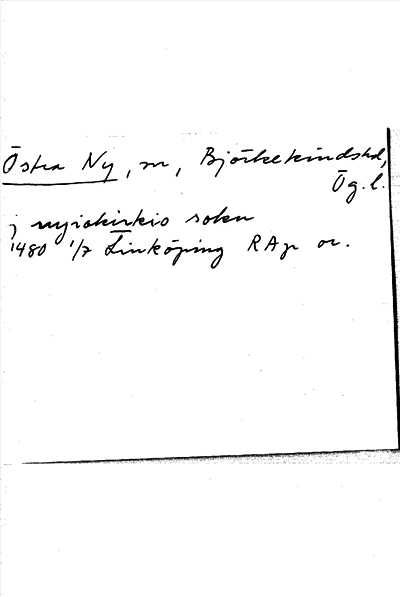 Östra Ny, sn, Björkekindshd,
Ög. l.
j nyiakirkio sokn
1480 1/7 Linköping RAp or.